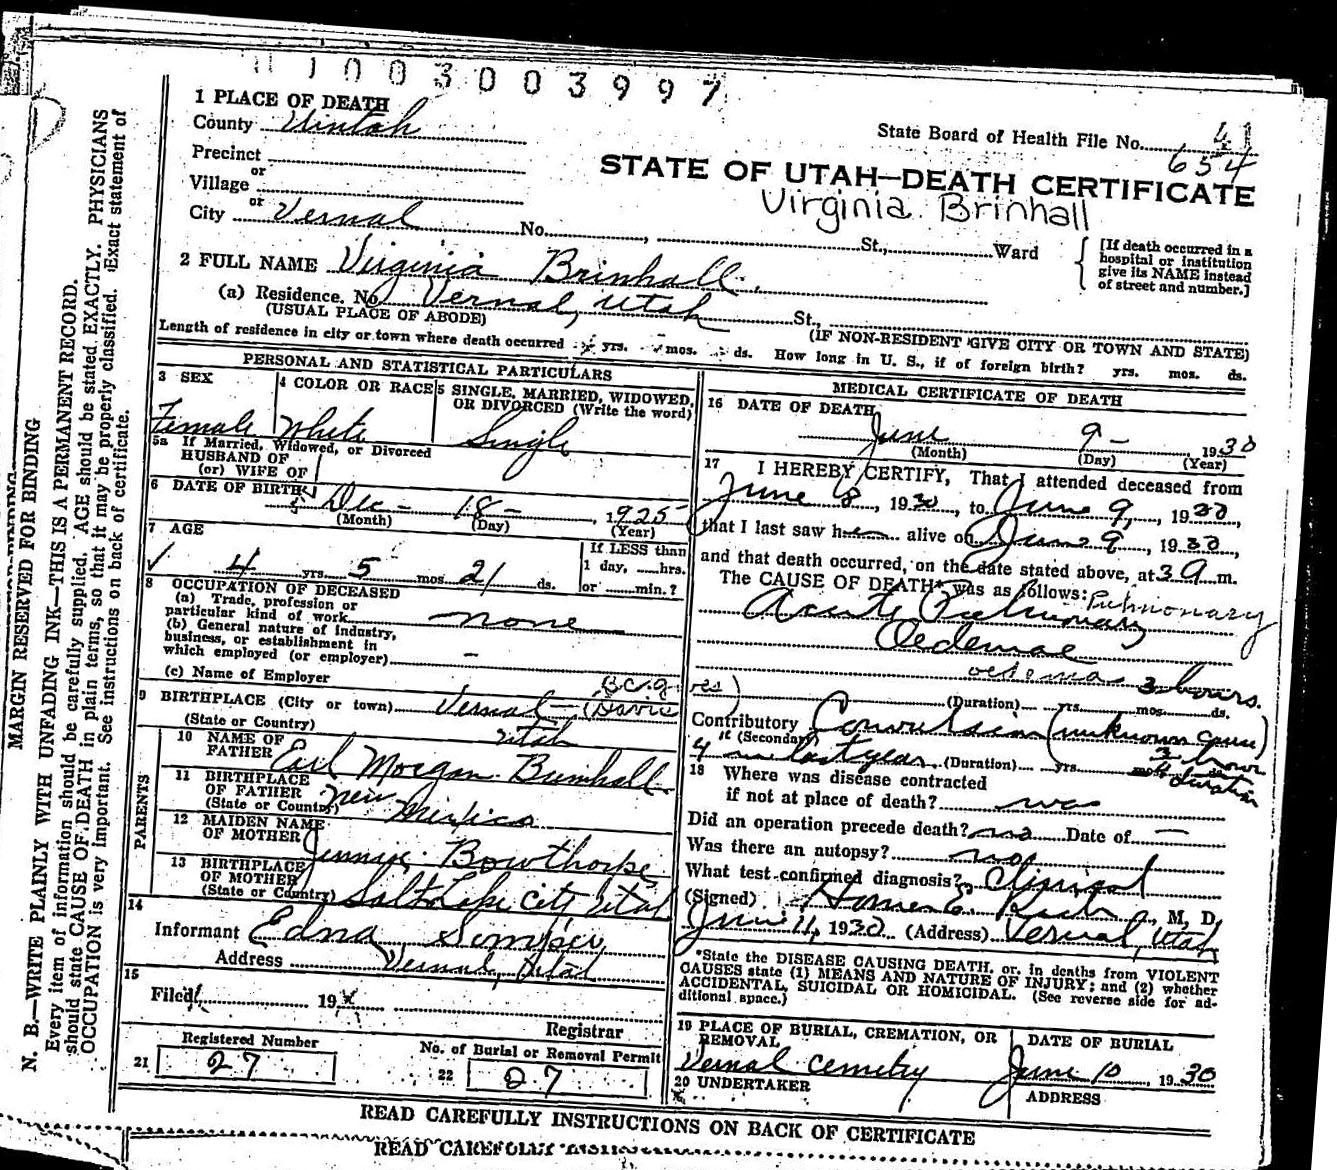 1003003997
1 PLACE OF DEATH
County Uintah
State Board of Health File No. 41
654
Precinct
or
Village
or
STATE OF UTAH—DEATH CERTIFICATE
Virginia Brinhall
City Vernal No. , St., Ward
[If death occurred in a
hospital or institution
give its NAME instead
of street and number.]
2 FULL NAME Virginia Brinhall.
(a) Residence. No. Vernal, Utah St.,
(USUAL PLACE OF ABODE)
(IF NON-RESIDENT GIVE CITY OR TOWN AND STATE)
Length of residence in city or town where death occurred yrs. mos. ds. How long in U. S., if of foreign birth? yrs. mos. ds.
PERSONAL AND STATISTICAL PARTICULARS
3 SEX
4 COLOR OR RACE
5 SINGLE, MARRIED, WIDOWED,
OR DIVORCED (Write the word)
Female White Single
5a If Married, Widowed, or Divorced
HUSBAND OF
(or) WIFE OF
6 DATE OF BIRTH Dec - 18 - , 1925
(Month) (Day) (Year)
7 AGE
If LESS than
1 day, hrs.
4 yrs. 5 mos. 21 ds. or min.?
8 OCCUPATION OF DECEASED
(a) Trade, profession or
particular kind of work none
(b) General nature of industry,
business, or establishment in
which employed (or employer) -
(c) Name of Employer
9 BIRTHPLACE (City or town) Vernal
(State or Country) Utah
PARENTS
10 NAME OF
FATHER Earl Morgan Brimhall
11 BIRTHPLACE
OF FATHER
(State or Country) New Mexico
12 MAIDEN NAME
OF MOTHER Jennie Bowthorpe
13 BIRTHPLACE
OF MOTHER
(State or Country) Salt Lake City Utah
14
Informant Edna
Address Vernal, Utah
15
Filed 19
Registrar
Registered Number
No. of Burial or Removal Permit
21 27
22 27
MEDICAL CERTIFICATE OF DEATH
16 DATE OF DEATH
June 9 - 1930
(Month) (Day) (Year)
17 I HEREBY CERTIFY, That I attended deceased from
June 8, 1930, to June 9, 1930,
that I last saw her alive on June 9, 1930,
and that death occurred, on the date stated above, at 3 a m.
The CAUSE OF DEATH* was as follows: Pulmonary
Acute Pulmonary
Oedemae
oedemas 3 hours.
(Duration) yrs. mos. ds.
Contributory Convulsion (unknown cause)
(Secondary)
4 in last year (Duration) yrs. mos.
duration
18 Where was disease contracted
if not at place of death?
Did an operation precede death? no Date of —
Was there an autopsy? no
What test confirmed diagnosis? Clinical
(Signed) Homer E. , M. D.
June 11, 1930 (Address) Vernal, Utah
*State the DISEASE CAUSING DEATH, or, in deaths from VIOLENT
CAUSES state (1) MEANS AND NATURE OF INJURY; and (2) whether
ACCIDENTAL, SUICIDAL OR HOMICIDAL. (See reverse side for ad-
ditional space.)
19 PLACE OF BURIAL, CREMATION, OR
REMOVAL
DATE OF BURIAL
Vernal Cemetery June 10 1930
20 UNDERTAKER
ADDRESS
READ CAREFULLY INSTRUCTIONS ON BACK OF CERTIFICATE
READ CAREFULLY
MARGIN RESERVED FOR BINDING
N. B.—WRITE PLAINLY WITH UNFADING INK—THIS IS A PERMANENT RECORD.
Every item of information should be carefully supplied. AGE should be stated EXACTLY. PHYSICIANS
should state CAUSE OF DEATH in plain terms, so that it may be properly classified. Exact statement of
OCCUPATION is very important. See instructions on back of certificate.